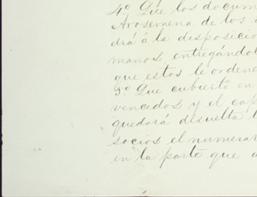 4º Que los docum
Arosemena de los
drá á la disposicio
manos, entregándol
que estos le ordene
5º Que cubierto en
vencidos y el cap
quedará desuelta l
socios el numerar
en la parte que a